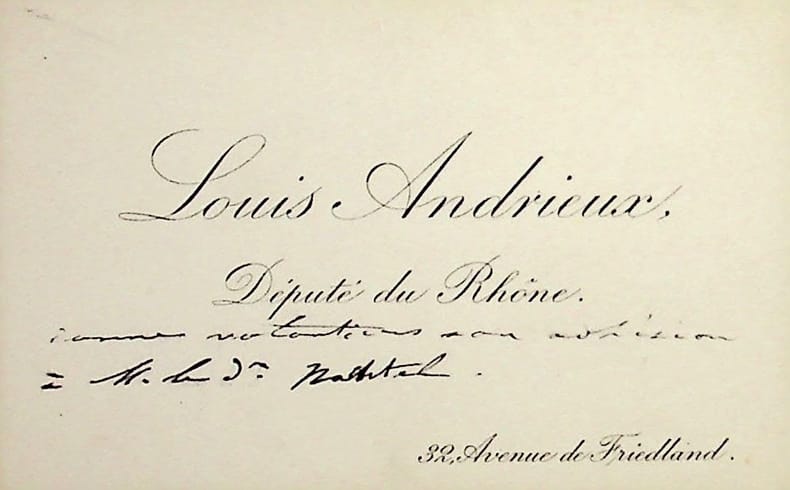 Louis Andrieux,
Député du Rhône.
donne volontiers son adhésion
à M. le Dr Nachtel.
32, Avenue de Friedland.